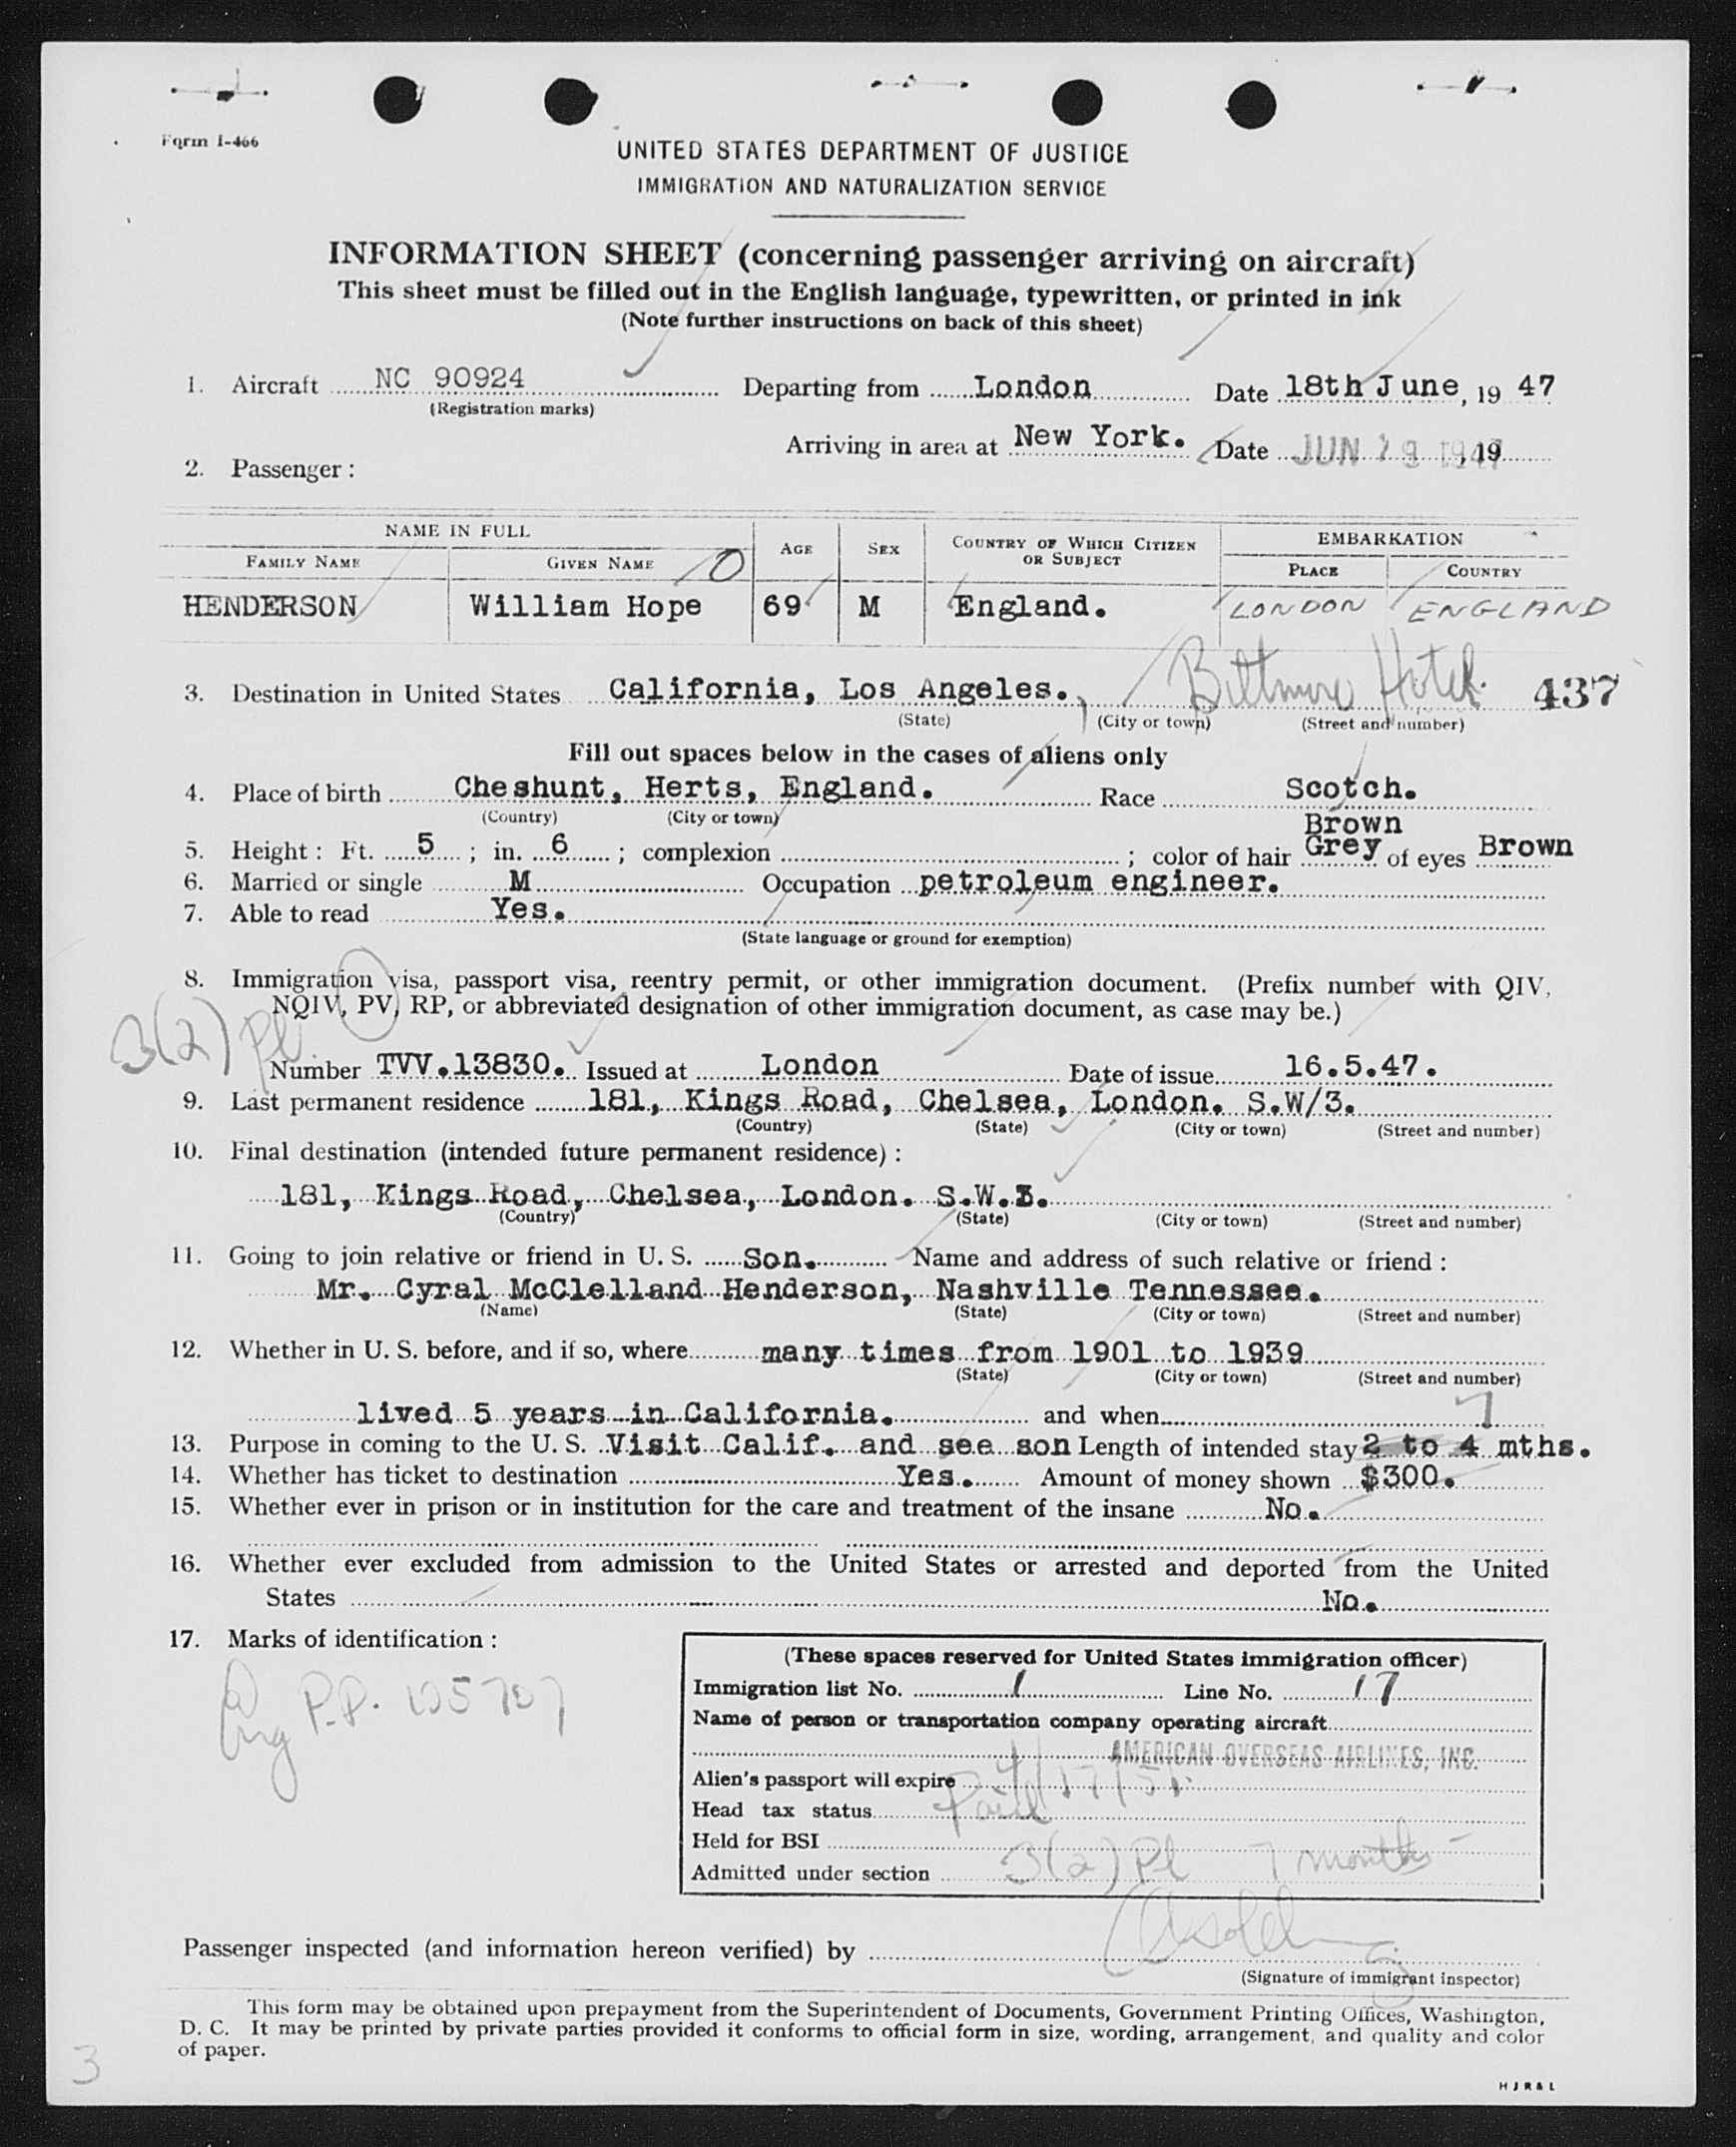 Form I-466
UNITED STATES DEPARTMENT OF JUSTICE
IMMIGRATION AND NATURALIZATION SERVICE
INFORMATION SHEET (concerning passenger arriving on aircraft)
This sheet must be filled out in the English language, typewritten, or printed in ink
(Note further instructions on back of this sheet)
1. Aircraft NC 90924 Departing from London Date 18th June, 19 47
(Registration marks)
Arriving in area at New York. Date JUN 19 1947, 19
2. Passenger :
NAME IN FULL AGE SEX COUNTRY OF WHICH CITIZEN OR SUBJECT EMBARKATION
FAMILY NAME GIVEN NAME 0 PLACE COUNTRY
HENDERSON William Hope 69 M England. LONDON ENGLAND
3. Destination in United States California, Los Angeles. Biltmore Hotel 437
(State) (City or town) (Street and number)
Fill out spaces below in the cases of aliens only
4. Place of birth Cheshunt, Herts, England. Race Scotch.
(Country) (City or town) Brown
5. Height : Ft. 5 ; in. 6 ; complexion ; color of hair Grey of eyes Brown
6. Married or single M Occupation petroleum engineer.
7. Able to read Yes.
(State language or ground for exemption)
8. Immigration visa, passport visa, reentry permit, or other immigration document. (Prefix number with QIV,
NQIV, PV, RP, or abbreviated designation of other immigration document, as case may be.)
3(2) Pl
Number TVV.13830. Issued at London Date of issue 16.5.47.
9. Last permanent residence 181, Kings Road, Chelsea, London. S.W/3.
(Country) (State) (City or town) (Street and number)
10. Final destination (intended future permanent residence) :
181, Kings Road, Chelsea, London. S.W.3.
(Country) (State) (City or town) (Street and number)
11. Going to join relative or friend in U. S. Son. Name and address of such relative or friend :
Mr. Cyral McClelland Henderson, Nashville Tennessee.
(Name) (State) (City or town) (Street and number)
12. Whether in U. S. before, and if so, where many times from 1901 to 1939
(State) (City or town) (Street and number)
lived 5 years in California. and when
7
13. Purpose in coming to the U. S. Visit Calif. and see son Length of intended stay 2 to 4 mths.
14. Whether has ticket to destination Yes. Amount of money shown $300.
15. Whether ever in prison or in institution for the care and treatment of the insane No.
16. Whether ever excluded from admission to the United States or arrested and deported from the United
States No.
17. Marks of identification :
Eng P.P. 105707
(These spaces reserved for United States immigration officer)
Immigration list No. 1 Line No. 17
Name of person or transportation company operating aircraft
AMERICAN OVERSEAS AIRLINES, INC.
Alien's passport will expire
Head tax status Paid
Held for BSI
Admitted under section 3(2) Pl 7 months
Passenger inspected (and information hereon verified) by
(Signature of immigrant inspector)
This form may be obtained upon prepayment from the Superintendent of Documents, Government Printing Offices, Washington,
D. C. It may be printed by private parties provided it conforms to official form in size, wording, arrangement, and quality and color
of paper.
3
H J R & L